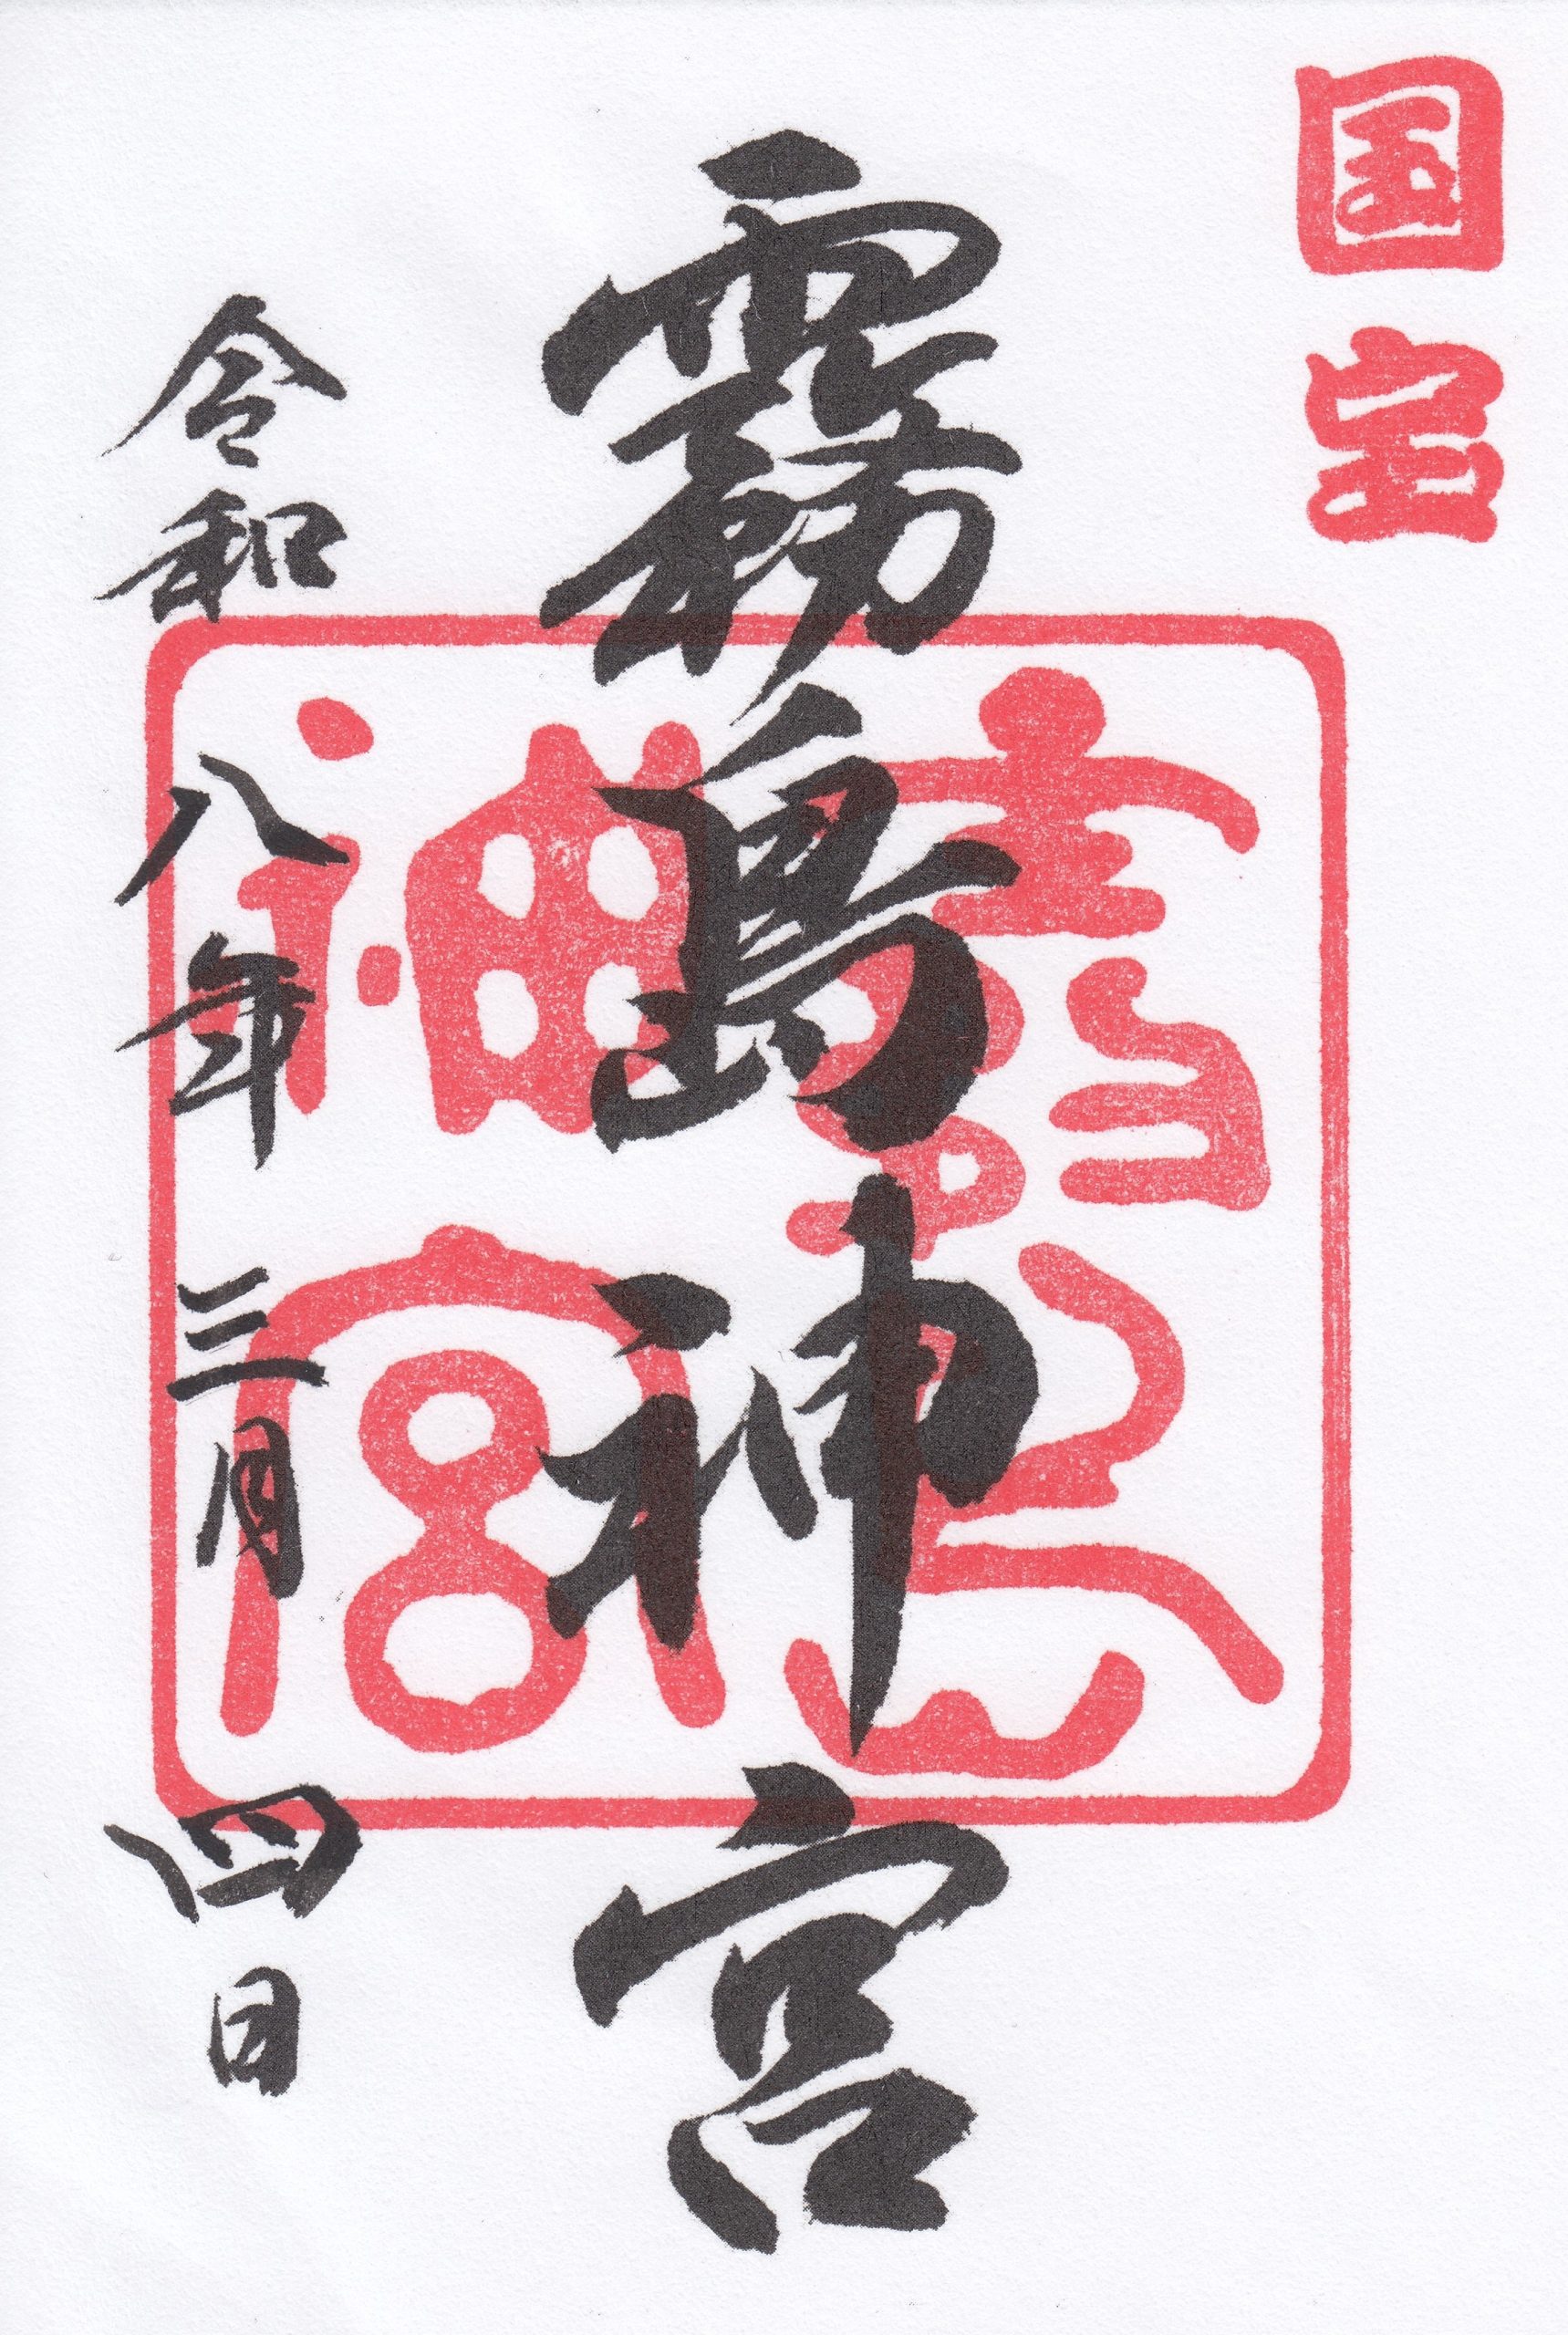 国宝
霧島神宮
霧島神宮
令和八年三月四日